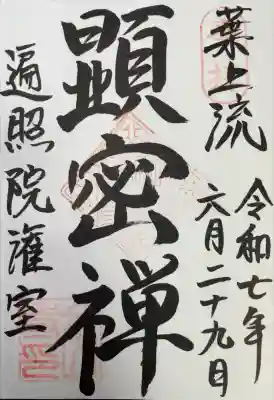 葉上流
令和七年
六月二十九日
顕密禅
遍照院灌室